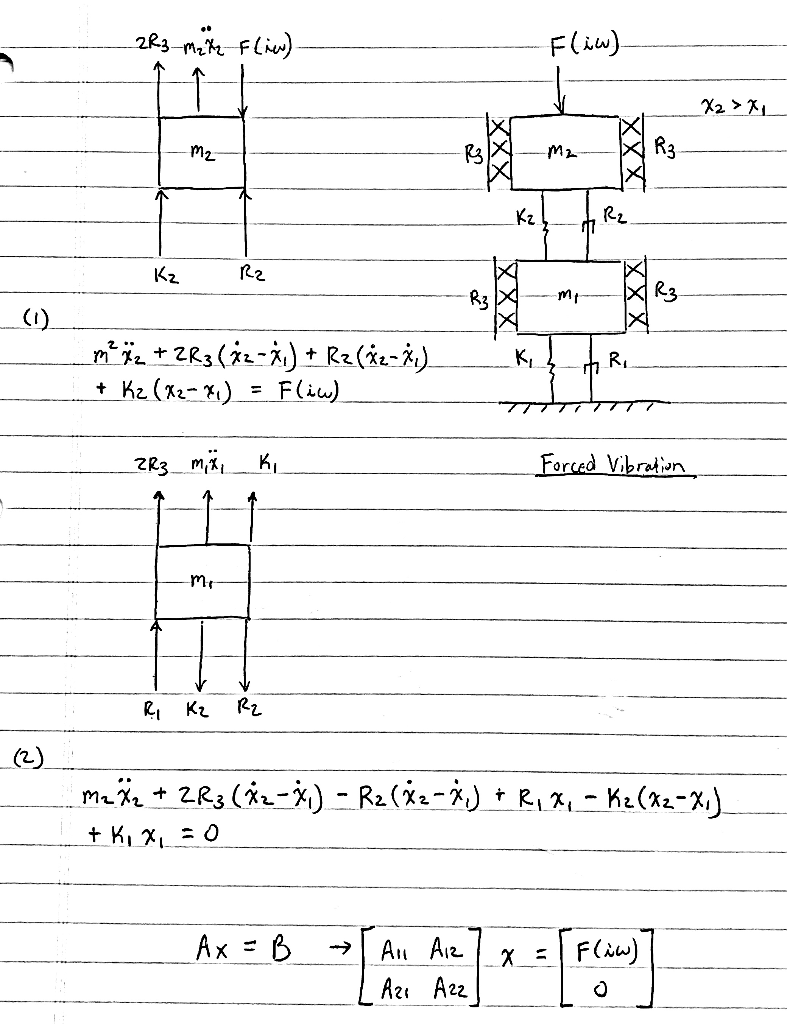 2R3 m2ẍ2 F(iω)
m2
K2 R2
F(iω)
x2 > x1
R3 m2 R3
K2 R2
R3 m1 R3
K1 R1
(1)
m²ẍ2 + 2R3(ẋ2-ẋ1) + R2(ẋ2-ẋ1)
+ K2(x2-x1) = F(iω)
2R3 m1ẍ1 K1
Forced Vibration
m1
R1 K2 R2
(2)
m2ẍ2 + 2R3(ẋ2-ẋ1) - R2(ẋ2-ẋ1) + R1 x1 - K2(x2-x1)
+ K1 x1 = 0
Ax = B → [A11 A12] x = [F(iω)]
[A21 A22] [0]